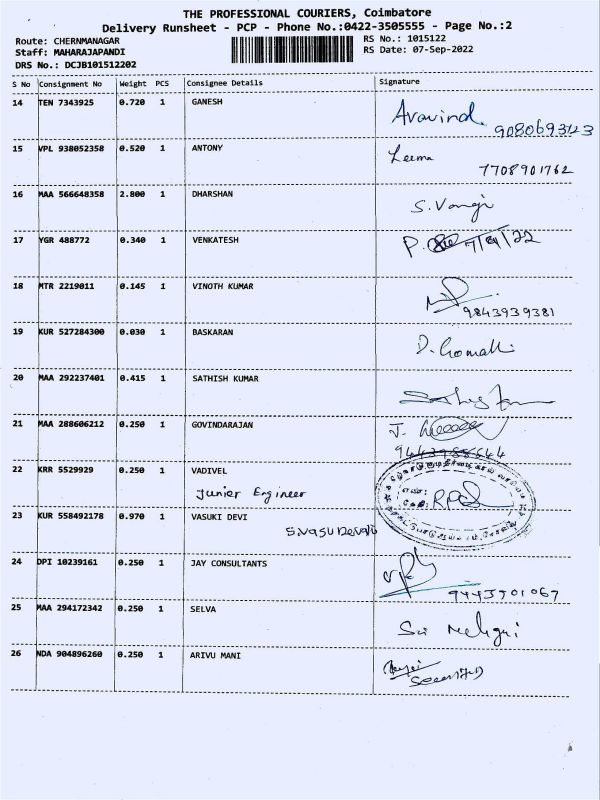 THE PROFESSIONAL COURIERS, Coimbatore
Delivery Runsheet - PCP - Phone No.:0422-3505555 - Page No.:2
Route: CHERNMANAGAR
RS No.: 1015122
Staff: MAHARAJAPANDI
RS Date: 07-Sep-2022
DRS No.: DCJB101512202
S No Consignment No Weight PCS Consignee Details Signature
14 TEN 7343925 0.720 1 GANESH Aravind.
908069343
15 VPL 938052358 0.520 1 ANTONY Leema
7708901762
16 MAA 566648358 2.800 1 DHARSHAN S. Vanaji
17 YGR 488772 0.340 1 VENKATESH P.
18 MTR 2219011 0.145 1 VINOTH KUMAR
9843939381
19 KUR 527284300 0.030 1 BASKARAN D. Gomathi
20 MAA 292237401 0.415 1 SATHISH KUMAR
21 MAA 288606212 0.250 1 GOVINDARAJAN J.
22 KRR 5529929 0.250 1 VADIVEL
Junior Engineer
23 KUR 558492178 0.970 1 VASUKI DEVI
S.VASUDEVAN
24 DPI 10239161 0.250 1 JAY CONSULTANTS
9443701067
25 MAA 294172342 0.250 1 SELVA
26 NDA 904896260 0.250 1 ARIVU MANI